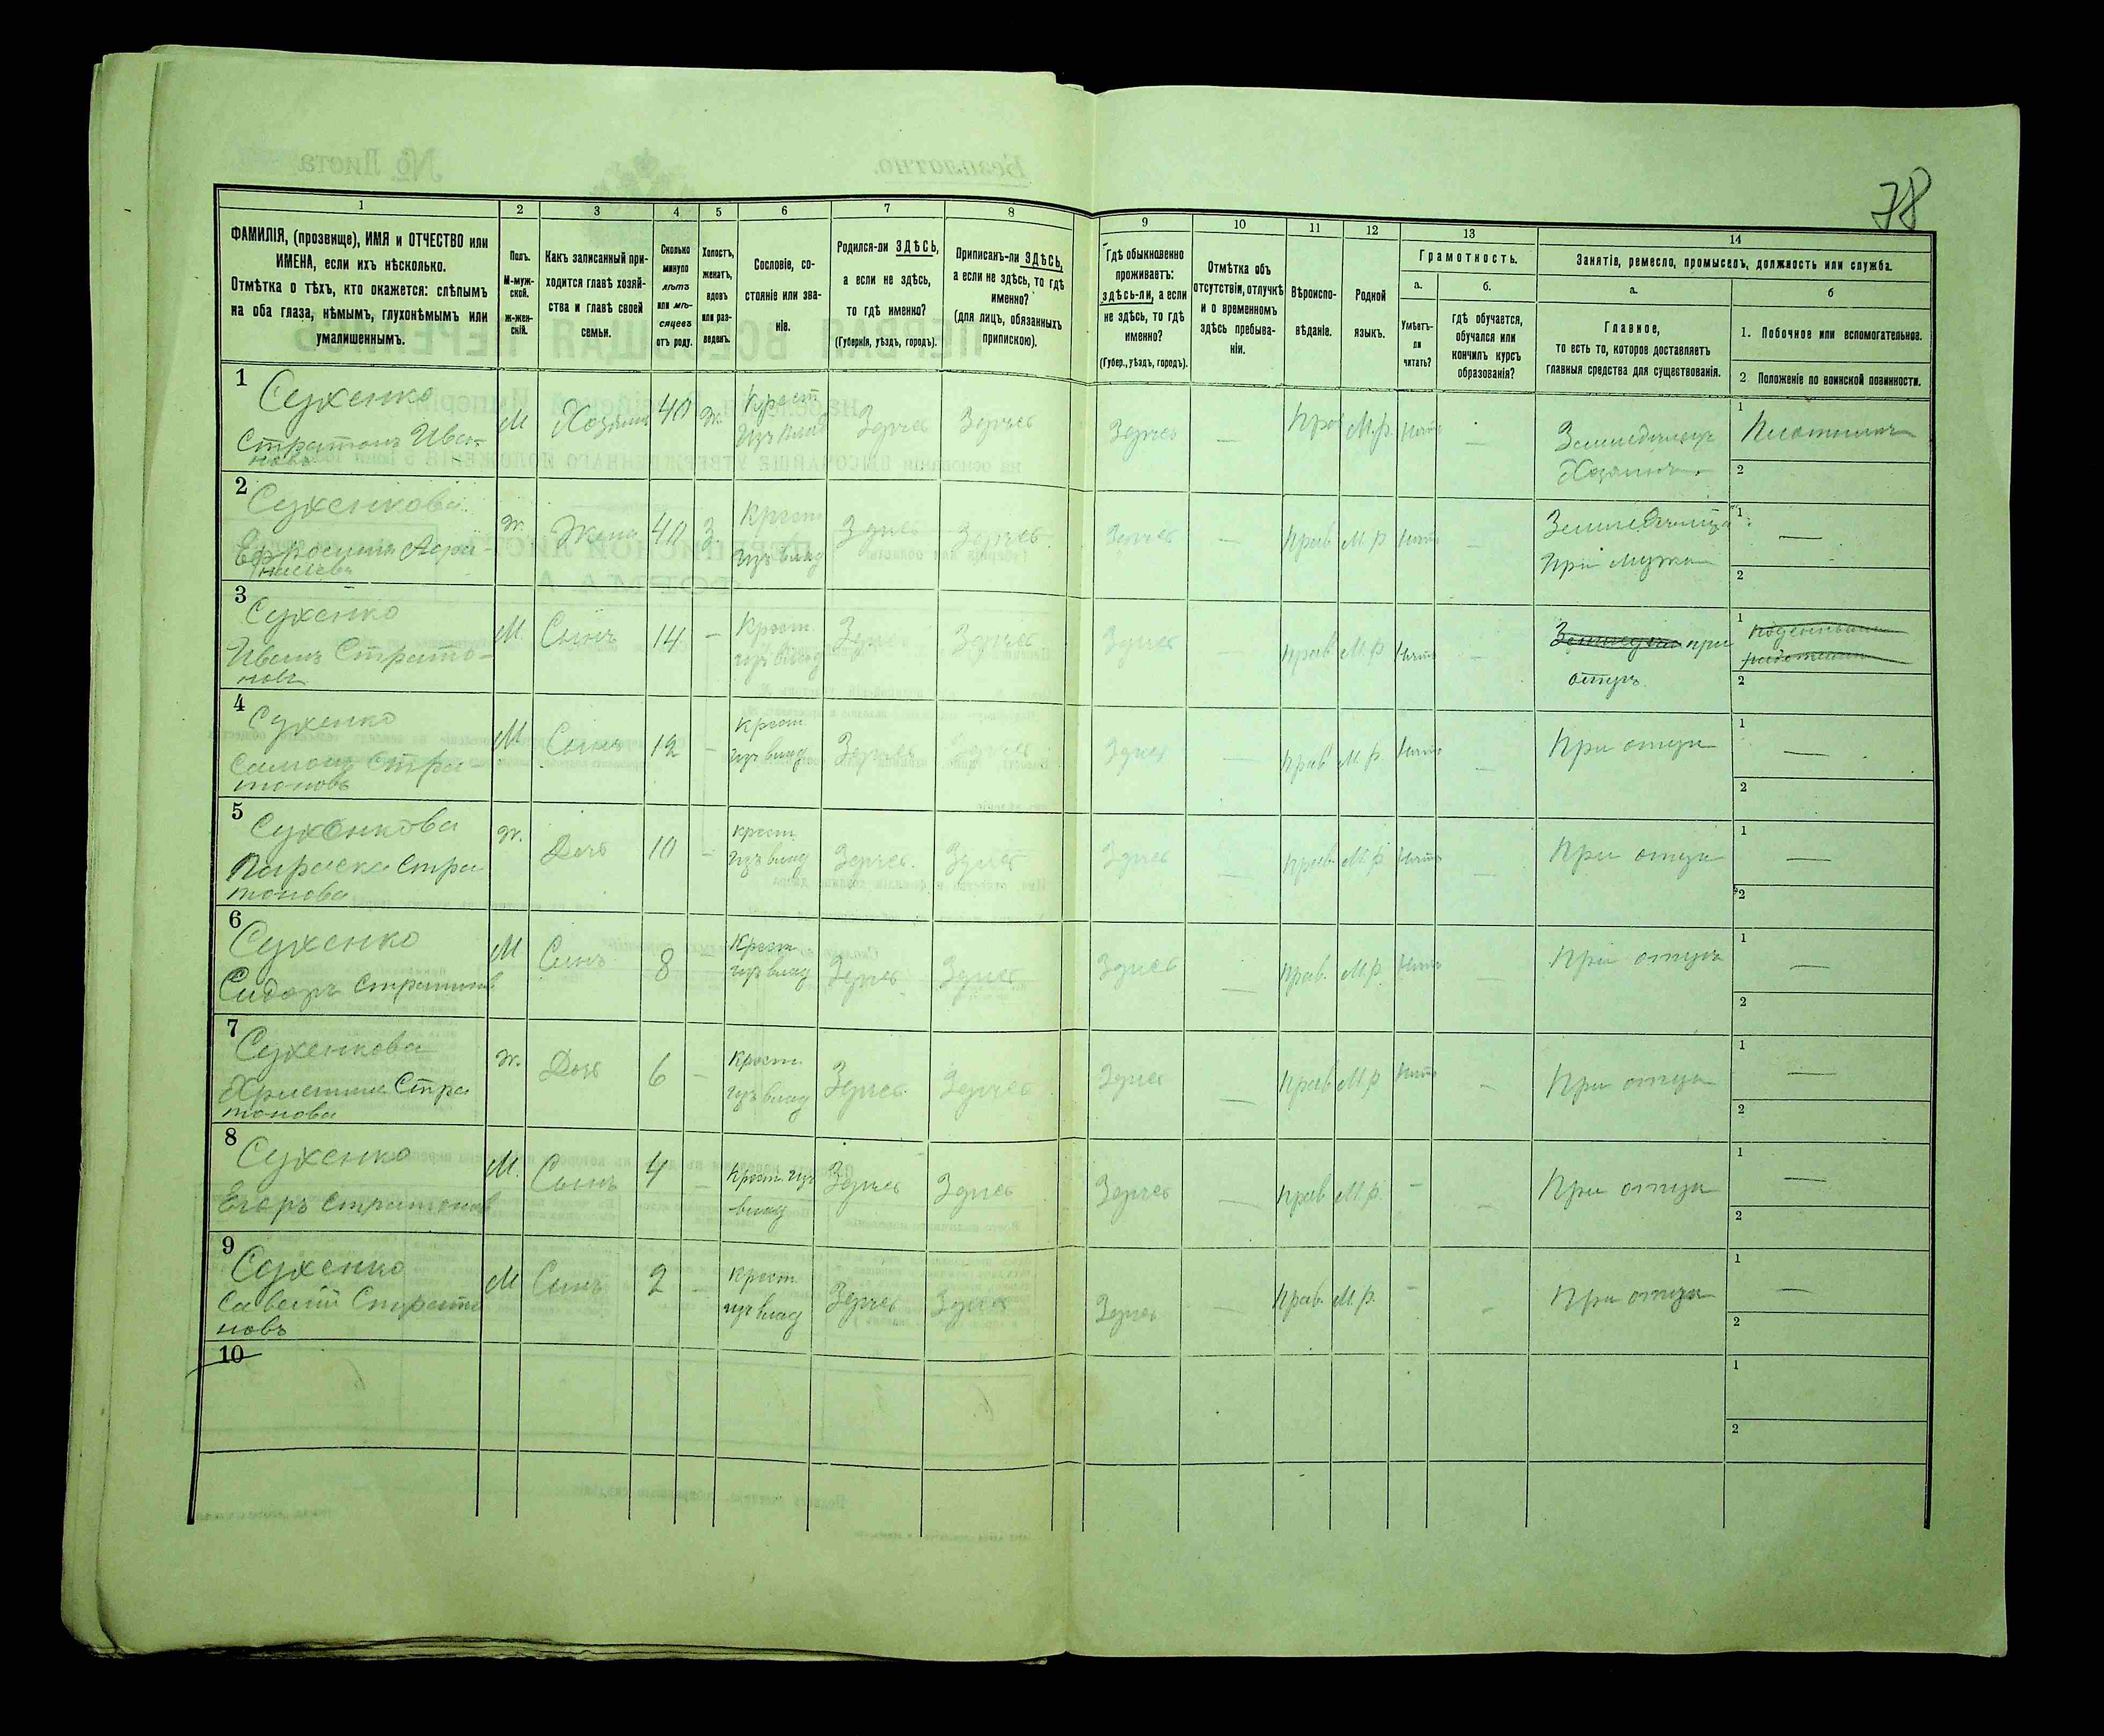 78
1 2 3 4 5 6 7 8 9 10 11 12 13 14
ФАМИЛІЯ, (прозвище), ИМЯ и ОТЧЕСТВО или
ИМЕНА, если ихъ нѣсколько.
Отмѣтка о тѣхъ, кто окажется: слѣпымъ
на оба глаза, нѣмымъ, глухонѣмымъ или
умалишеннымъ.
Полъ.
М-муж-
ской.
ж-жен-
скій.
Какъ записанный при-
ходится главѣ хозяй-
ства и главѣ своей
семьи.
Сколько
минуло
лѣтъ
или мѣ-
сяцевъ
отъ роду.
Холостъ,
женатъ,
вдовъ
или раз-
веденъ.
Сословіе, со-
стояніе или зва-
ніе.
Родился-ли ЗДѢСЬ,
а если не здѣсь,
то гдѣ именно?
(Губернія, уѣздъ, городъ).
Приписанъ-ли ЗДѢСЬ,
а если не здѣсь, то гдѣ
именно?
(для лицъ, обязанныхъ
припискою).
Гдѣ обыкновенно
проживаетъ:
здѣсь-ли, а если
не здѣсь, то гдѣ
именно?
(Губер., уѣздъ, городъ).
Отмѣтка объ
отсутствіи, отлучкѣ
и о временномъ
здѣсь пребыва-
ніи.
Вѣроиспо-
вѣданіе.
Родной
языкъ.
Грамотность.
а.
Умѣетъ-
ли
читать?
б.
гдѣ обучается,
обучался или
кончилъ курсъ
образованія?
Занятіе, ремесло, промыселъ, должность или служба.
а.
Главное,
то есть то, которое доставляетъ
главныя средства для существованія.
б
1. Побочное или вспомогательное.
2 Положеніе по воинской повинности.
1
Сухенко
Стратонъ Ива-
новъ
М Хозяинъ 40 Ж.
Крест
изъ влад
Здѣсь Здѣсь Здѣсь — Прав М.р. Нѣтъ —
Земледѣлецъ
Хозяинъ.
1
Плотникъ
2
2
Сухенкова
Ефросинія
Ж. Жена 40 З.
Крест
изъ влад
Здѣсь Здѣсь Здѣсь — Прав М.р Нѣтъ —
При мужѣ
1 —
2
3
Сухенко
Иванъ Страто-
новъ
М. Сынъ 14 —
Крест
изъ влад
Здѣсь Здѣсь Здѣсь — Прав М.р Нѣтъ —
при
отцѣ
1
2
4
Сухенко
Стра-
тоновъ
М Сынъ 12 —
Крест
изъ влад
Здѣсь Здѣсь Здѣсь — Прав М.р. Нѣтъ —
При отцѣ
1 —
2
5
Сухенкова
Параска Стра
тонова
Ж. Дочь 10 —
Крест
изъ влад
Здѣсь. Здѣсь Здѣсь — Прав. М.р Нѣтъ —
При отцѣ
1 —
2
6
Сухенко
Сидоръ Стратонов
М Сынъ 8 —
Крест
изъ влад
Здѣсь. Здѣсь Здѣсь — Прав. М.р. Нѣтъ —
При отцѣ
1 —
2
7
Сухенкова
Христина Стра
тонова
Ж. Дочь 6 —
Крест
изъ влад
Здѣсь. Здѣсь Здѣсь — Прав М.р Нѣтъ —
При отцѣ
1 —
2
8
Сухенко
Егоръ Стратонов
М. Сынъ 4 —
Крест. изъ
влад
Здѣсь Здѣсь Здѣсь — Прав М.р. — —
При отцѣ
1 —
2
9
Сухенко
Савелій Страто
новъ
М Сынъ 2 —
Крест
изъ влад
Здѣсь Здѣсь Здѣсь — Прав. М.р. — —
При отцѣ
1 —
2
10
1
2